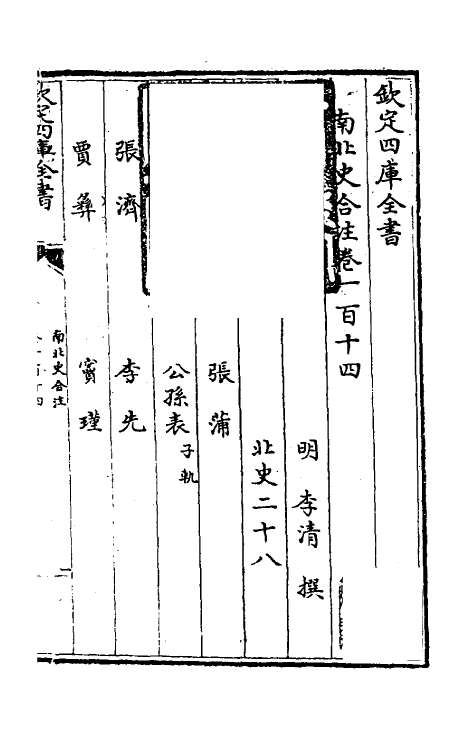 欽定四庫全書
南北史合注卷一百十四
明 李清 撰
北史二十八
張蒲
公孫表 子軌
張濟 李先
賈彝 竇瑾
欽定四庫全書
南北史合注